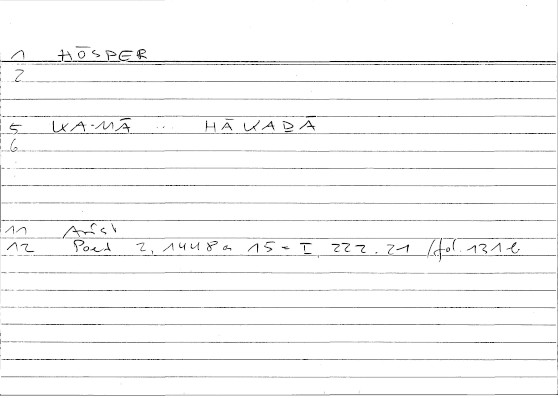 1 HŌSPER
2
5 KA-MĀ ... HĀKADĀ
6
11 Arist
12 Poet 2, 1448a 15 = I, 222.21 /fol. 131b